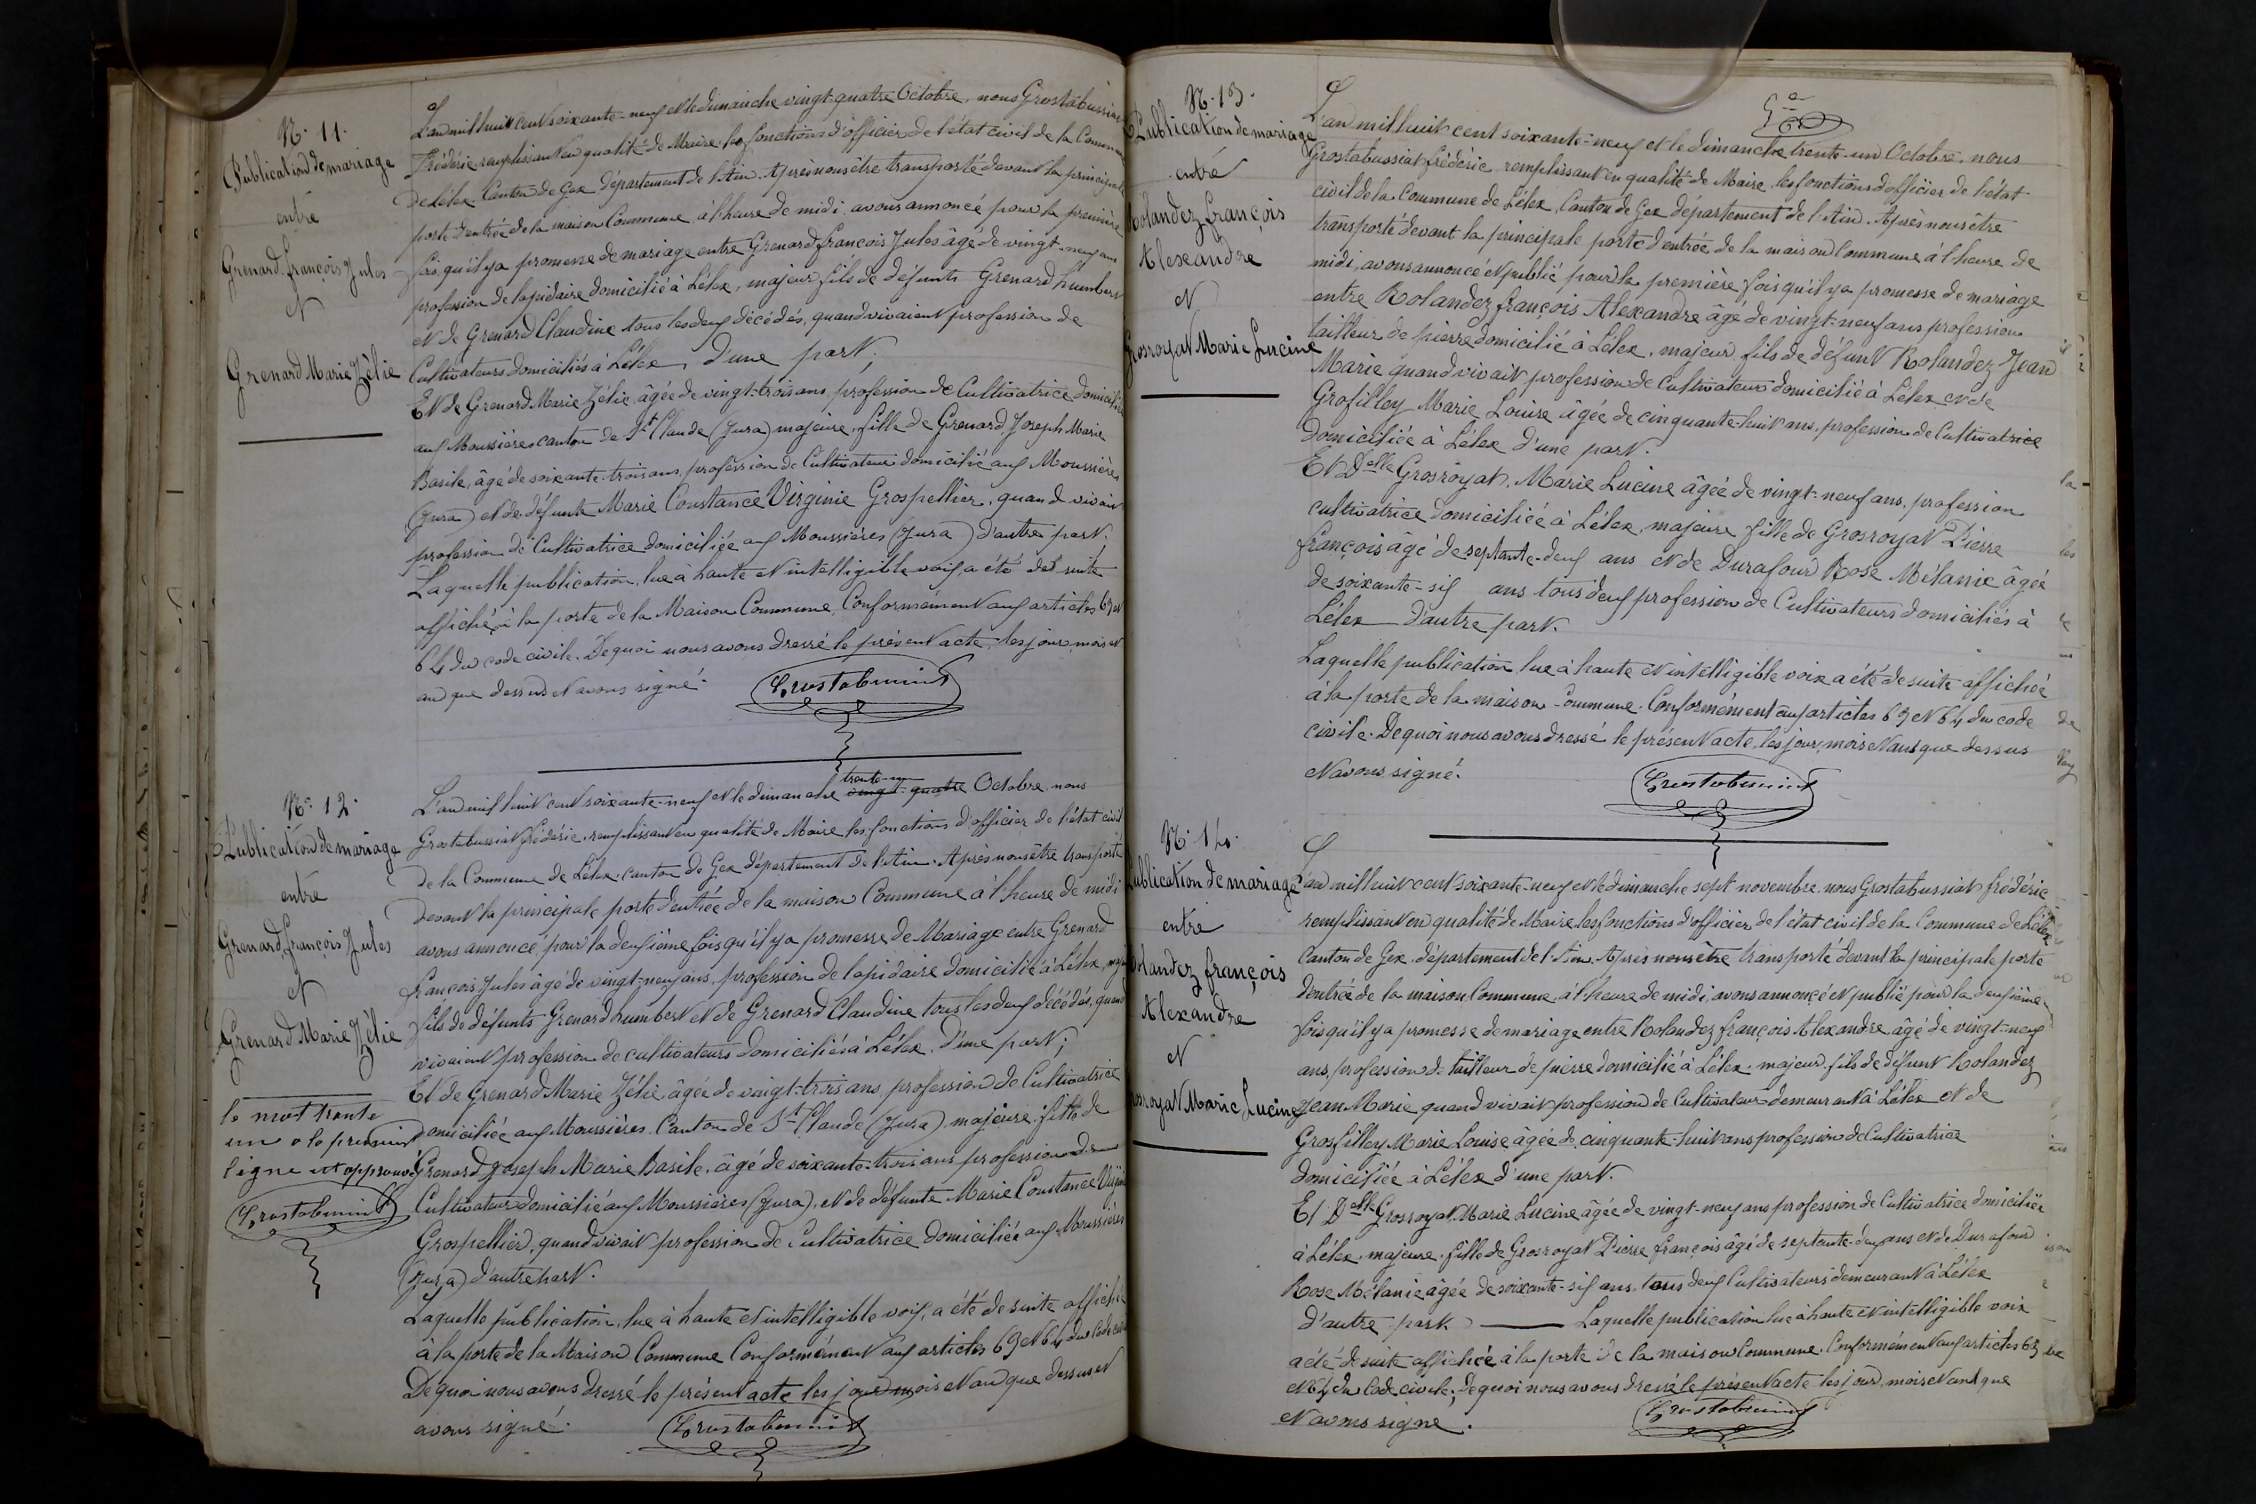 N. 11.
Publication de mariage
entre
Grenard, françois Jules
et
Grenard Marie Zélie
L'an mil huit cent soixante-neuf et le dimanche vingt-quatre Octobre, nous Grostabussiat
Frédéric remplissant en qualité de Maire les fonctions d'officier de l'état civil de la Commune
De Lélex Canton de Gex Département de l'Ain. Après nous être transporté devant la principale
porte d'entrée de la maison Commune, à l'heure de midi, avons annoncé pour la première
fois, qu'il y a promesse de mariage entre Grenard françois Jules âgé de vingt-neuf ans
profession de lapidaire domicilié à Lélex, majeur fils de défunts Grenard humbert
et de Grenard Claudine tous les deux décédés, quand vivaient profession de
Cultivateurs domiciliés à Lélex, D'une part;
Et de Grenard Marie Zélie, âgée de vingt-trois ans, profession de Cultivatrice domiciliée
aux Moussières canton de St Claude (Jura) majeure, fille de Grenard Joseph Marie
Basile, âgé de soixante-trois ans, profession de Cultivateur domicilié aux Moussières
(Jura) et de défunte Marie Constance Virginie Grospellier, quand vivait
profession de Cultivatrice domiciliée aux Moussières (Jura) d'autre part.
Laquelle publication, lue à haute et intelligible voix, a été de suite
affiché à la porte de la Maison Commune, Conformément aux articles 63 et
64 du code civile. De quoi nous avons dressé le présent acte, les jour, mois et
an que dessus et avons signé.
Grostabussiat
N. 12.
Publication de mariage
entre
Grenard, françois Jules
et
Grenard Marie Zélie
le mot trente
un à la première
ligne est approuvé
Grostabussiat
trente-un
L'an mil huit cent soixante-neuf et le dimanche vingt-quatre Octobre, nous
Grostabussiat frédéric, remplissant en qualité de Maire les fonctions d'officier de l'état civil
de la Commune de Lélex, canton de Gex département de l'Ain. Après nous être transporté
devant la principale porte d'entrée de la maison Commune à l'heure de midi
avons annoncé, pour la deuxième fois qu'il y a promesse de Mariage entre Grenard
françois Jules âgé de vingt-neuf ans, profession de lapidaire domicilié à Lélex, maj
fils de défunts Grenard humbert et de Grenard Claudine tous les deux décédés, quand
vivaient profession de cultivateurs domiciliés à Lélex, D'une part;
Et de Grenard Marie Zélie, âgée de vingt-trois ans, profession de Cultivatrice
domiciliée aux Moussières Canton de St Claude (Jura), majeure, fille de
Grenard Joseph Marie Basile, âgé de soixante-trois ans, profession de
Cultivateur domicilié aux Moussières (Jura), et de défunte Marie Constance Virginie
Grospellier, quand vivait profession de Cultivatrice domiciliée aux Moussières
(Jura) d'autre part.
Laquelle publication, lue à haute et intelligible voix, a été de suite affichée
à la porte de la Maison Commune Conformément aux articles 63 et 64 du code civil
De quoi nous avons dressé le présent acte les jour mois et an que dessus et
avons signé.
Grostabussiat
N. 13.
Publication de mariage
entre
Rolandez françois
Alexandre
et
Grosroyat Marie Lucine
L'an mil huit cent soixante-neuf et le dimanche trente-un Octobre, nous
Grostabussiat frédéric remplissant en qualité de Maire les fonctions d'officier de l'état
civil de la Commune de Lélex, Canton de Gex département de l'Ain. Après nous être
transporté devant la principale porte d'entrée de la maison Commune à l'heure de
midi, avons annoncé et publié pour la première fois qu'il y a promesse de mariage
entre Rolandez françois Alexandre âgé de vingt-neuf ans profession
tailleur de pierre domicilié à Lélex, majeur fils de défunt Rolandez Jean
Marie quand vivait profession de Cultivateur domicilié à Lélex et de
Grofilley Marie Louise âgée de cinquante-huit ans, profession de Cultivatrice
Domiciliée à Lélex d'une part.
Et Delle Grosroyat, Marie Lucine âgée de vingt-neuf ans, profession
cultivatrice domiciliée à Lélex, majeure fille de Grosroyat Pierre
françois âgé de septante-deux ans et de Durafour Rose Mélanie âgée
de soixante-six ans tous deux profession de Cultivateurs domiciliés à
Lélex d'autre part.
Laquelle publication, lue à haute et intelligible voix a été de suite affichée
à la porte de la maison Commune. Conformément aux articles 63 et 64 du code
civile. De quoi nous avons dressé le présent acte, les jour, mois et ans que dessus
et avons signé.
Grostabussiat
N. 14.
Publication de mariage
entre
Rolandez françois
Alexandre
et
Grosroyat Marie Lucine
L'an mil huit cent soixante-neuf et le dimanche sept novembre, nous Grostabussiat frédéric
remplissant en qualité de Maire les fonctions d'officier de l'état civil de la Commune de Lélex
Canton de Gex, département de l'Ain. Après nous être transporté devant la principale porte
d'entrée de la maison Commune, à l'heure de midi, avons annoncé et publié pour la deuxième
fois qu'il y a promesse de mariage entre Rolandez françois Alexandre âgé de vingt-neuf
ans, profession de tailleur de pierre domicilié à Lélex, majeur, fils de défunt Rolandez
Jean Marie quand vivait profession de Cultivateur demeurant à Lélex et de
Grosfilley Marie Louise âgée de cinquante-huit ans profession de Cultivatrice
domiciliée à Lélex d'une part.
Et Delle Grosroyat, Marie Lucine âgée de vingt-neuf ans profession de Cultivatrice domiciliée
à Lélex, majeure, fille de Grosroyat Pierre françois âgé de septante-deux ans et de Durafour
Rose Mélanie âgée de soixante-six ans, tous deux Cultivateurs demeurant à Lélex
d'autre part. Laquelle publication lue à haute et intelligible voix
a été de suite affichée à la porte de la maison Commune. Conformément aux articles 63
et 64 du Code civile; De quoi nous avons dressé le présent acte les jour, mois et and que
et avons signé.
Grostabussiat